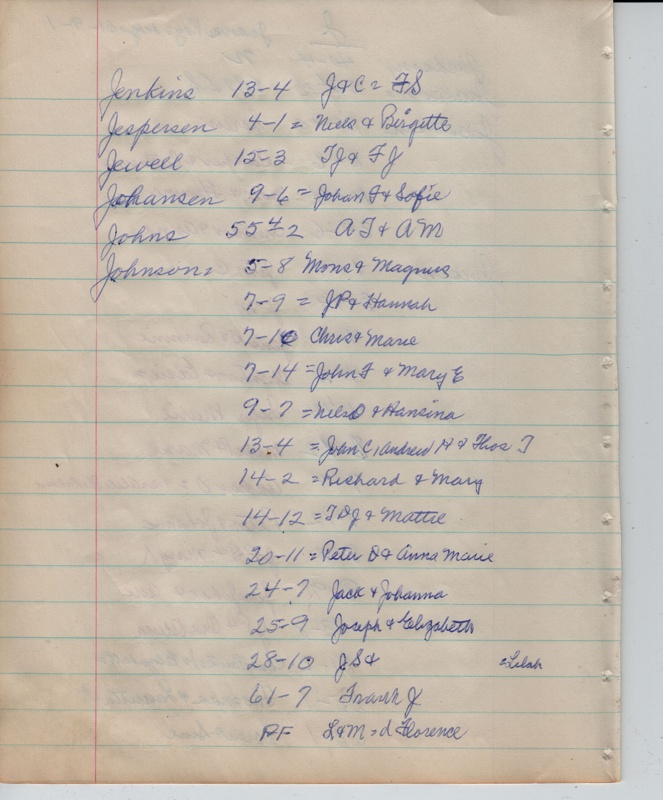 Jenkins 13-4 J & C = FS
Jespersen 4-1 = Niels & Birgette
Jewell 15-3 TJ & FJ
Johansen 9-6 = Johan F & Sofie
Johns 55-2 AJ & AM
Johnson = 5-8 Mons & Magnus
7-9 = JP & Hannah
7-10 Chris & Marie
7-14 = John F & Mary E
9-7 = Nels O & Hansina
13-4 = John C, Andrew H & Thos J
14-2 = Richard & Mary
14-12 = TDJ & Mattie
20-11 = Peter D & Anna Marie
24-7 Jack & Johanna
25-9 Joseph & Elizabeth
28-10 JS & = Lelah
61-7 Frank J
PF L & M = d Florence